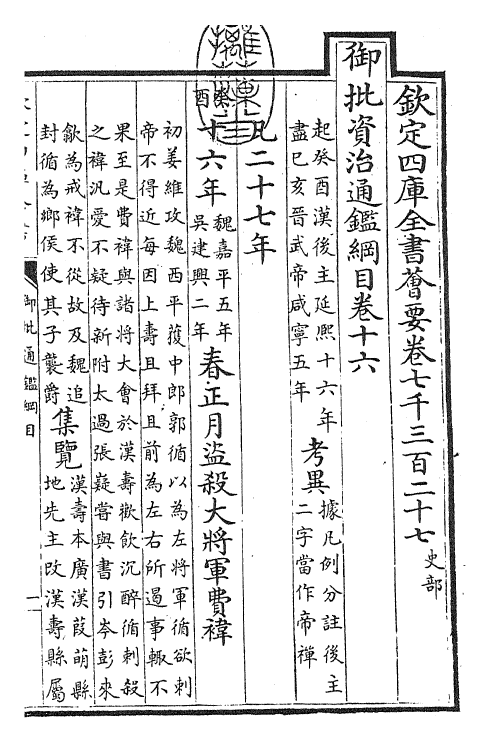 欽定四庫全書薈要卷七千三百二十七 史部
御批資治通鑑綱目卷十六
起癸酉漢後主延熙十六年
盡己亥晉武帝咸寧五年
考異
據凡例分註後主
二字當作帝禪
凡二十七年
癸酉
十六年
魏嘉平五年
吳建興二年
春正月盜殺大將軍費禕
初姜維攻魏西平獲中郎郭循以為左將軍循欲刺
帝不得近每因上壽且拜且前為左右所遏事輒不
果至是費禕與諸將大會於漢壽歡飲沉醉循刺殺
之禕汎愛不疑待新附太過張嶷嘗與書引岑彭來
歙為戒禕不從故及魏追
封循為鄉侯使其子襲爵
集覽
漢壽本廣漢葭萌縣
地先主改漢壽縣屬
御批通鑑綱目
一